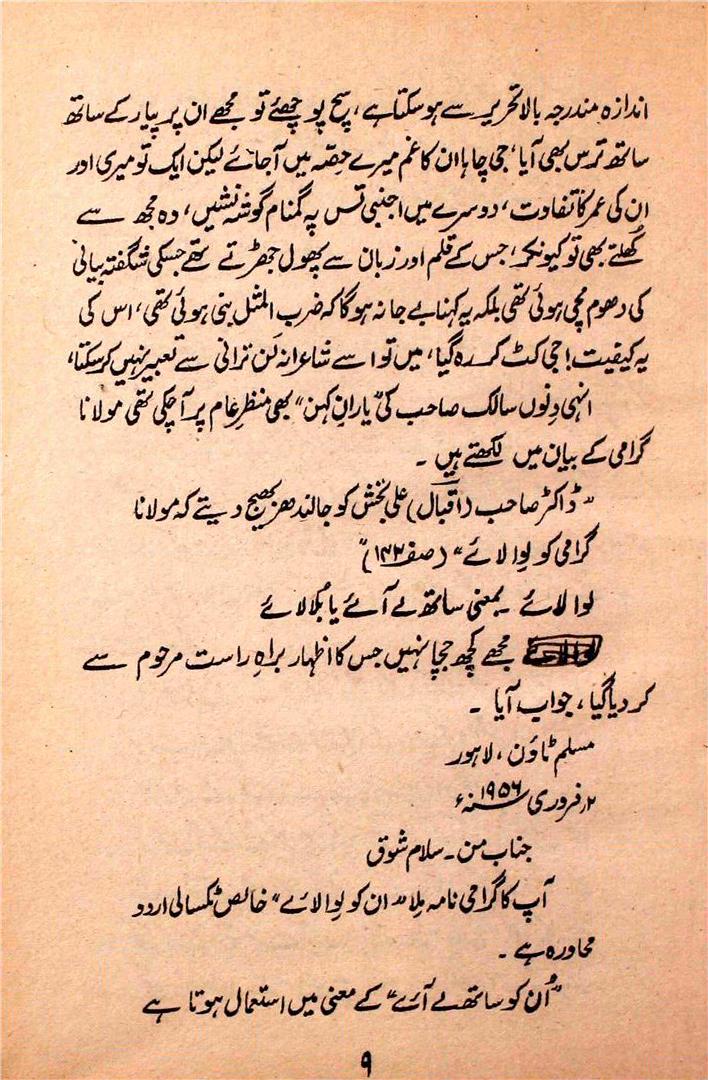 اندازہ مندرجہ بالا تحریر سے ہوسکتا ہے، سچ پوچھئے تو مجھے ان پر پیار کے ساتھ
ساتھ ترس بھی آیا، جی چاہا ان کا غم میرے حصّہ میں آجائے لیکن ایک تو میری اور
ان کی عمر کا تفاوت، دوسرے میں اجنبی تس پہ گمنام گوشہ نشیں، وہ مجھ سے
کُھلتے بھی تو کیونکر! جس کے قلم اور زبان سے پھول جھڑتے تھے جسکی شگفتہ بیانی
کی دھوم مچی ہوئی تھی بلکہ یہ کہنا بے جا نہ ہوگا کہ ضرب المثل بنی ہوئی تھی، اس کی
یہ کیفیت! جی کٹ کر رہ گیا، میں تو اسے شاعرانہ لن ترانی سے تعبیر نہیں کرسکتا،
انہی دِنوں سالک صاحب کی "یارانِ کہن" بھی منظرِ عام پر آچکی تھی مولانا
گرامی کے بیان میں لکھتے ہیں ۔
"ڈاکٹر صاحب (اقبال) علی بخش کو جالندھر بھیج دیتے کہ مولانا
گرامی کو لِوا لائے" (صفہ ۱۴۲)
لوا لائے ۔ بمعنی ساتھ لے آئے یا بُلا لائے
مجھے کچھ جچا نہیں جس کا اظہار براہِ راست مرحوم سے
کر دیا گیا، جواب آیا ۔
مسلم ٹاؤن، لاہور
۲؍ فروری ۱۹۵۶ سنہء
جناب من ۔ سلام شوق
آپ کا گرامی نامہ مِلا "ان کو لِوا لائے" خالص ٹکسالی اردو
محاورہ ہے ۔
"اُن کو ساتھ لے آئے" کے معنی میں استعمال ہوتا ہے
۹